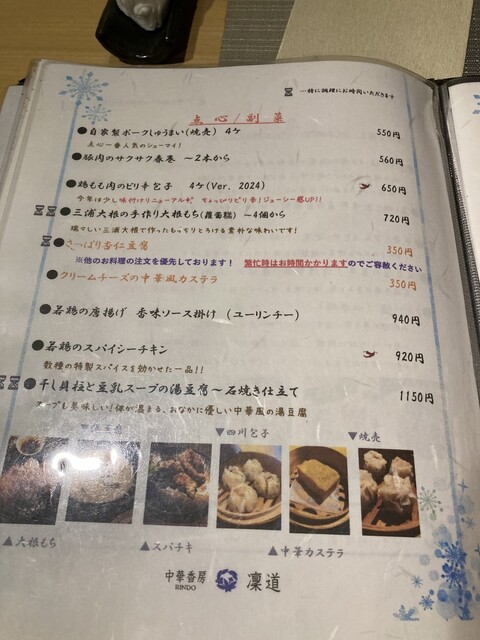 …特に調理にお時間いただきます
点心/副菜
●自家製ポークしゅうまい(焼売) 4ケ 550円
点心一番人気のシューマイ!
●豚肉のサクサク春巻 ~2本から 560円
●鶏もも肉のピリ辛包子 4ケ(Ver. 2024) 650円
今年は少し味付けリニューアル♪ ちょっぴりピリ辛!ジューシー感UP!!
●三浦大根の手作り大根もち(蘿蔔糕) ~4個から 720円
瑞々しい三浦大根で作ったもっちりとろける素朴な味わいです!
●さっぱり杏仁豆腐 350円
※他のお料理の注文を優先しております! 繁忙時はお時間かかりますのでご容赦ください
●クリームチーズの中華風カステラ 350円
●若鶏の唐揚げ 香味ソース掛け (ユーリンチー) 940円
●若鶏のスパイシーチキン 920円
数種の特製スパイスを効かせた一品!!
●干し貝柱と豆乳スープの湯豆腐~石焼き仕立て 1150円
スープも美味しい!体が温まる、おなかに優しい中華風の湯豆腐
▼四川包子
▼焼売
▲大根もち
▲スパチキ
▲中華カステラ
中華香房
RINDO
凜道